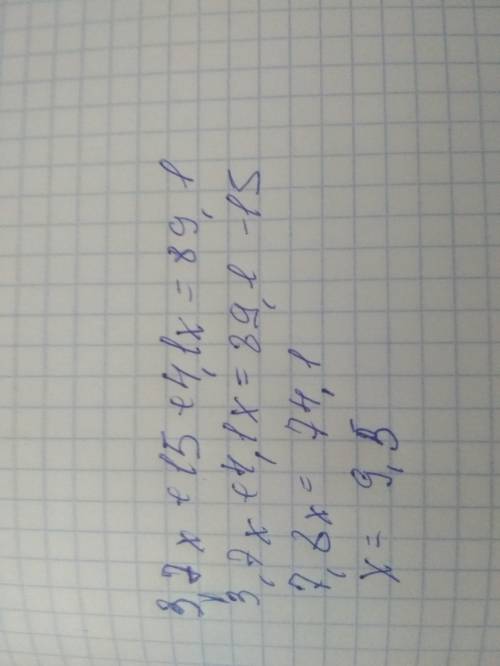 3,7x+15+4,1x=89,1
3,7x+4,1x=89,1-15
7,8x=74,1
x=9,5